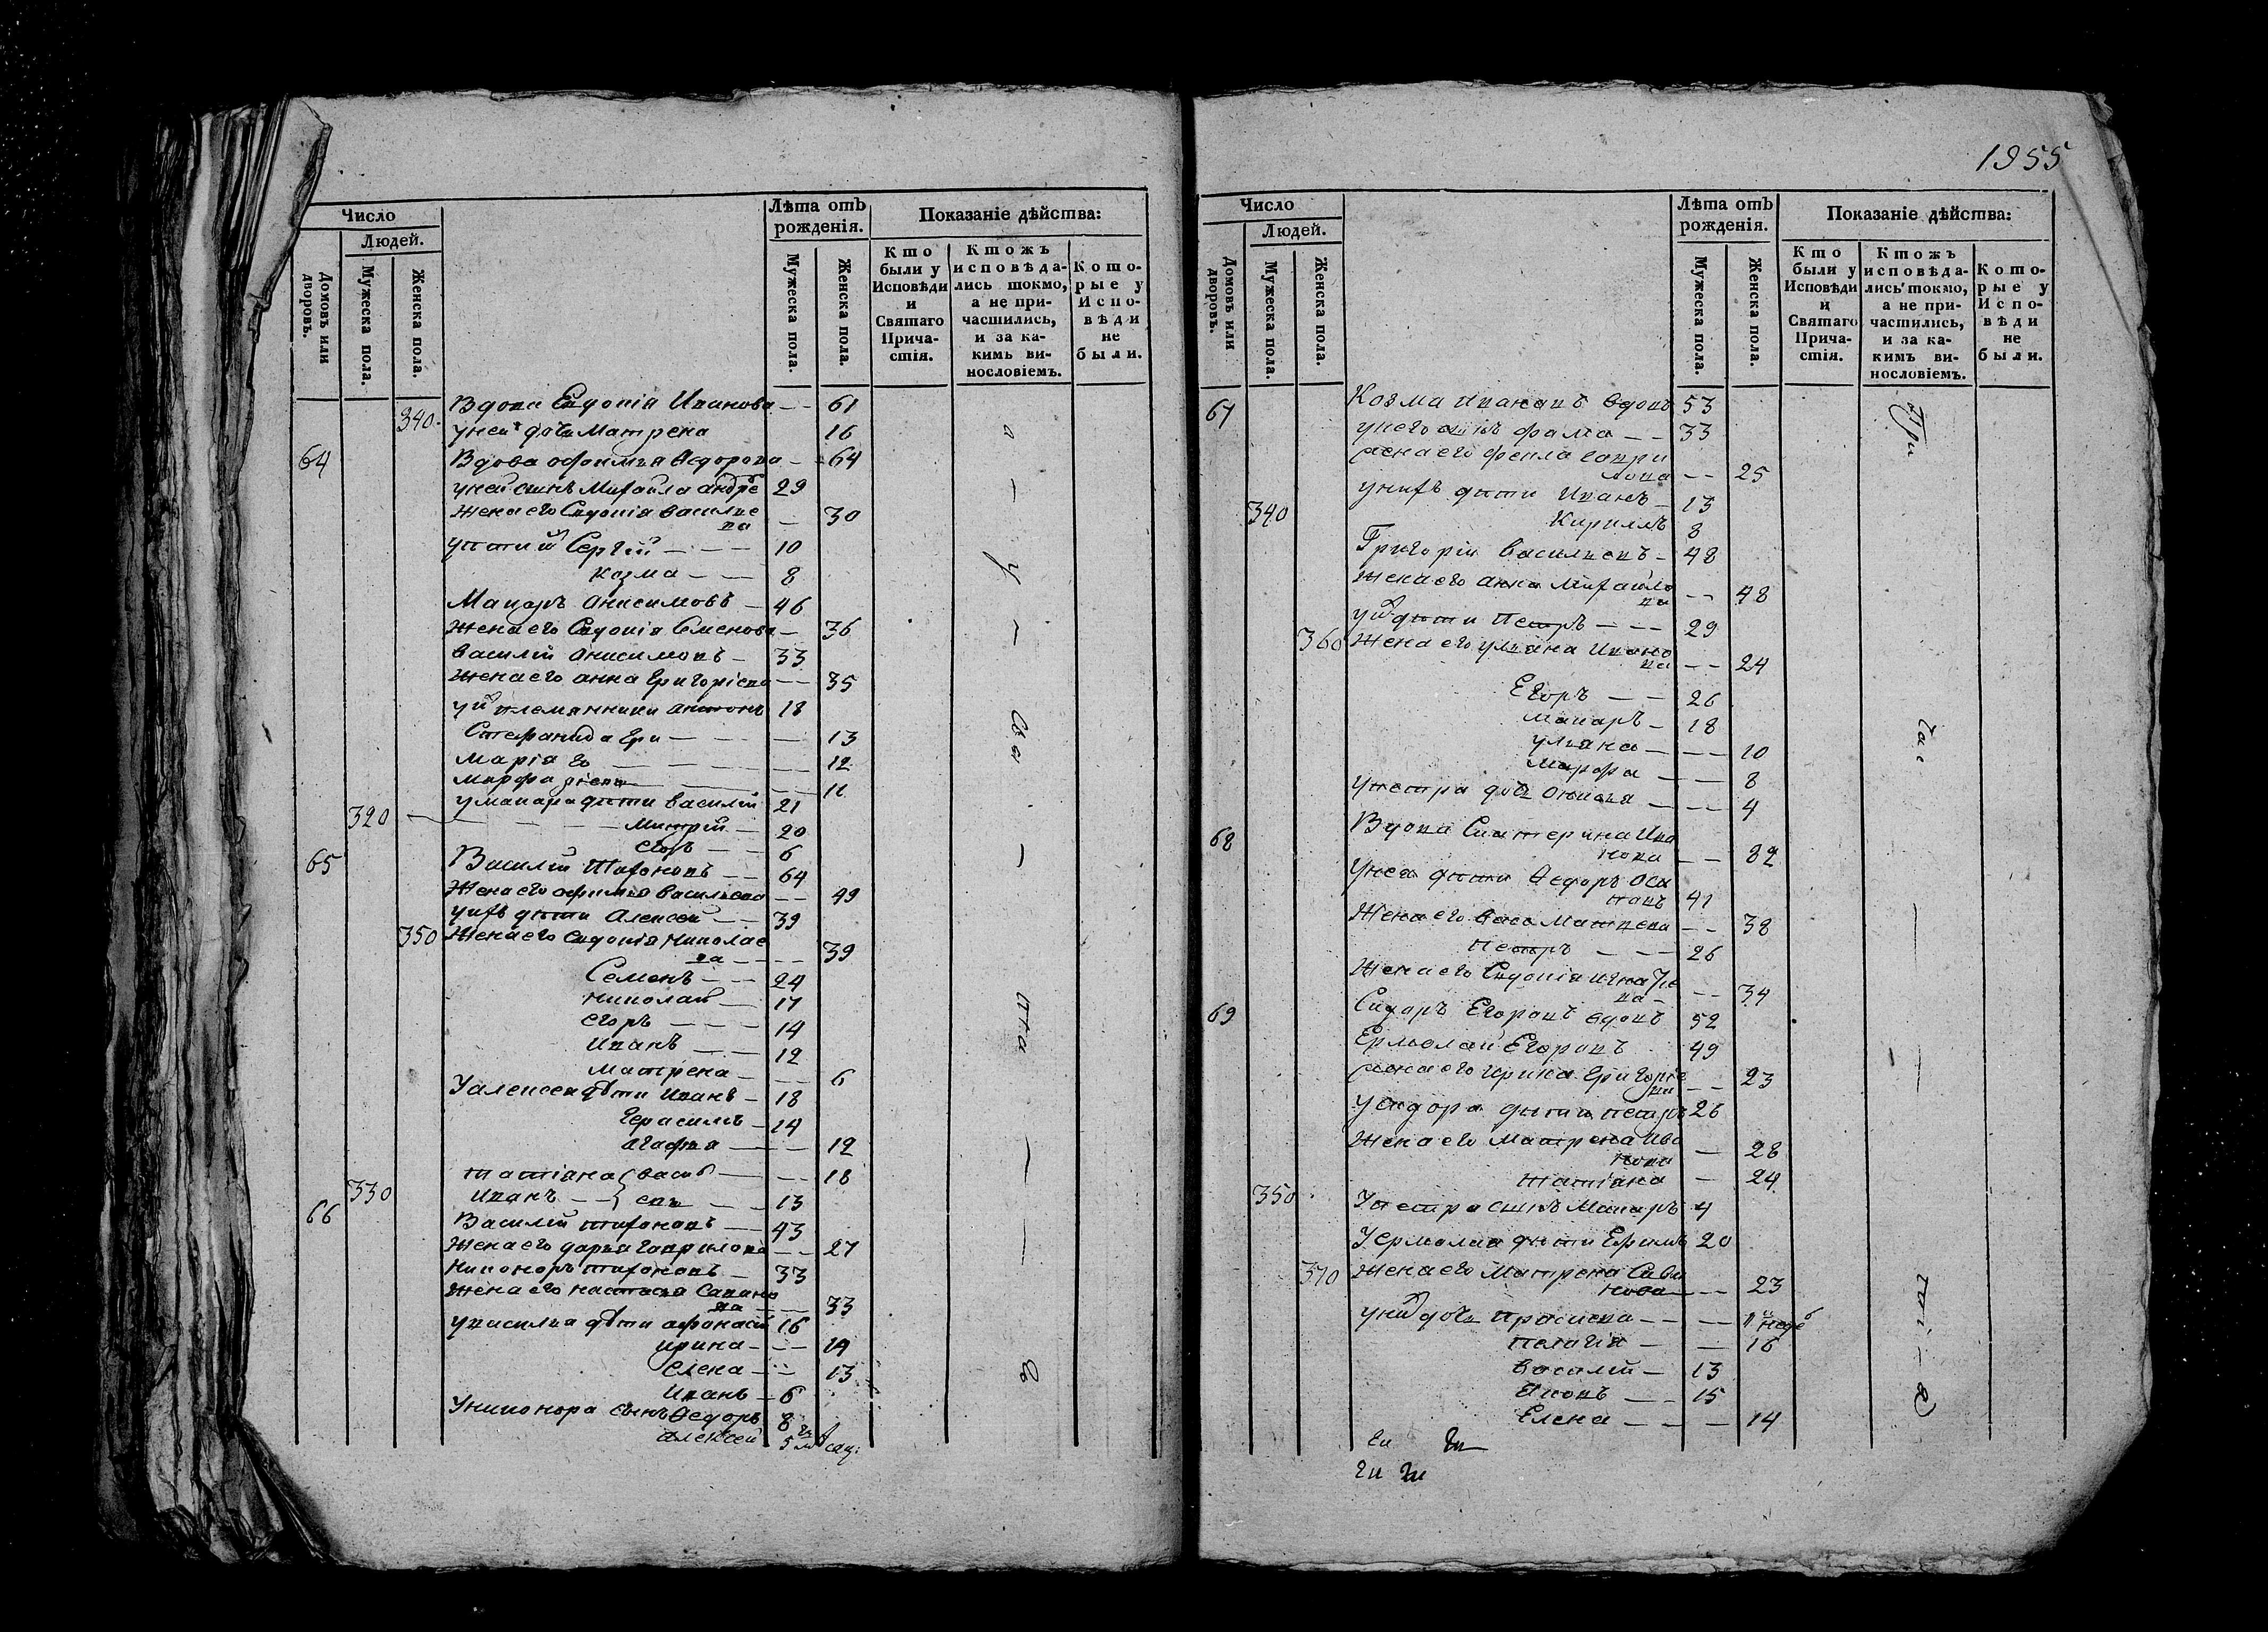 Число
Людей.
Домовъ или дворовъ.
Мужеска пола.
Женска пола.
Лѣта отъ рожденія.
Мужеска пола.
Женска пола.
Показаніе дѣйства:
Кто были у Исповѣди и Святаго Причастія.
Ктожъ исповѣдались токмо, а не причастились, и за какимъ винословіемъ.
Которые у Исповѣди не были.
Вдова Евдокія Иванова — 61
340 у неи дочь Матрена 16
64 Вдова Офимья Ѳедорова — 64
у ней сынъ Михайла 29
Жена его Евдокія Василье
ва — 30
Сергій — 10
Козма — 8
Макаръ Анисимовъ — 46
Жена его Евдокія Семенова — 36
Василій Анисимовъ — 33
Жена его Анна Григоріева — 35
племянники Антонъ 18
Стефанида — 13
Марія — 12
Марфа — 11
у Макара дѣти Василій 21
320 Митрій — 20
Егоръ — 6
65 Василій Тихоновъ — 64
Жена его Офимья Васильева — 49
у нихъ дѣти Алексей — 39
350 Жена его Евдокія Николае
ва — 39
Семенъ — 24
Николай — 17
Егоръ — 14
Иванъ — 12
Матрена — 6
У Алексея дѣти Иванъ — 18
Герасимъ — 14
Агафья — 12
Татіана — 18
330 Иванъ — 13
66 Василій Тихоновъ — 43
Жена его Дарья Гаврилова — 27
Никоноръ Тихоновъ — 33
Жена его Настасья
ва — 33
у Василья дѣти Афонасій 16
Ирина — 14
Елена — 13
Иванъ — 6
У Никонора сынъ Ѳедоръ 8
Алексей 5
1955
Число
Людей.
Домовъ или дворовъ.
Мужеска пола.
Женска пола.
Лѣта отъ рожденія.
Мужеска пола.
Женска пола.
Показаніе дѣйства:
Кто были у Исповѣди и Святаго Причастія.
Ктожъ исповѣдались токмо, а не причастились, и за какимъ винословіемъ.
Которые у Исповѣди не были.
67 Козма Ивановъ вдовъ 53
у него сынъ Фома — 33
жена его Фекла Гаври
лова — 25
у нихъ дѣти Иванъ — 13
340 Кириллъ 8
Григорій Васильевъ — 48
Жена его Анна Михайло
ва — 48
дѣти Петръ — 29
360 Жена его Ульяна Ивано
ва — 24
Егоръ — 26
Макаръ — 18
Ульяна — 10
Марфа — 8
У Петра дочь — 4
68 Вдова Екатерина Ива
нова — 82
У нея дѣти Ѳедоръ 41
Жена его — 38
Петръ — 26
Жена его Евдокія Игнатье
ва — 34
69 Сидаръ Егоровъ вдовъ 52
Ермолай Егоровъ 49
жена его Ирина Григоріе
ва — 23
у Сидора дѣти Петръ 26
Жена его Матрена Ива
нова — 28
Татіана — 24
350 У Петра сынъ Макаръ 4
У Ермолая дѣти Ефимъ 20
370 Жена его Матрена
нова — 23
дочь — 1 недѣ
Пелагія — 16
Василій — 13
Яковъ — 15
Елена — 14